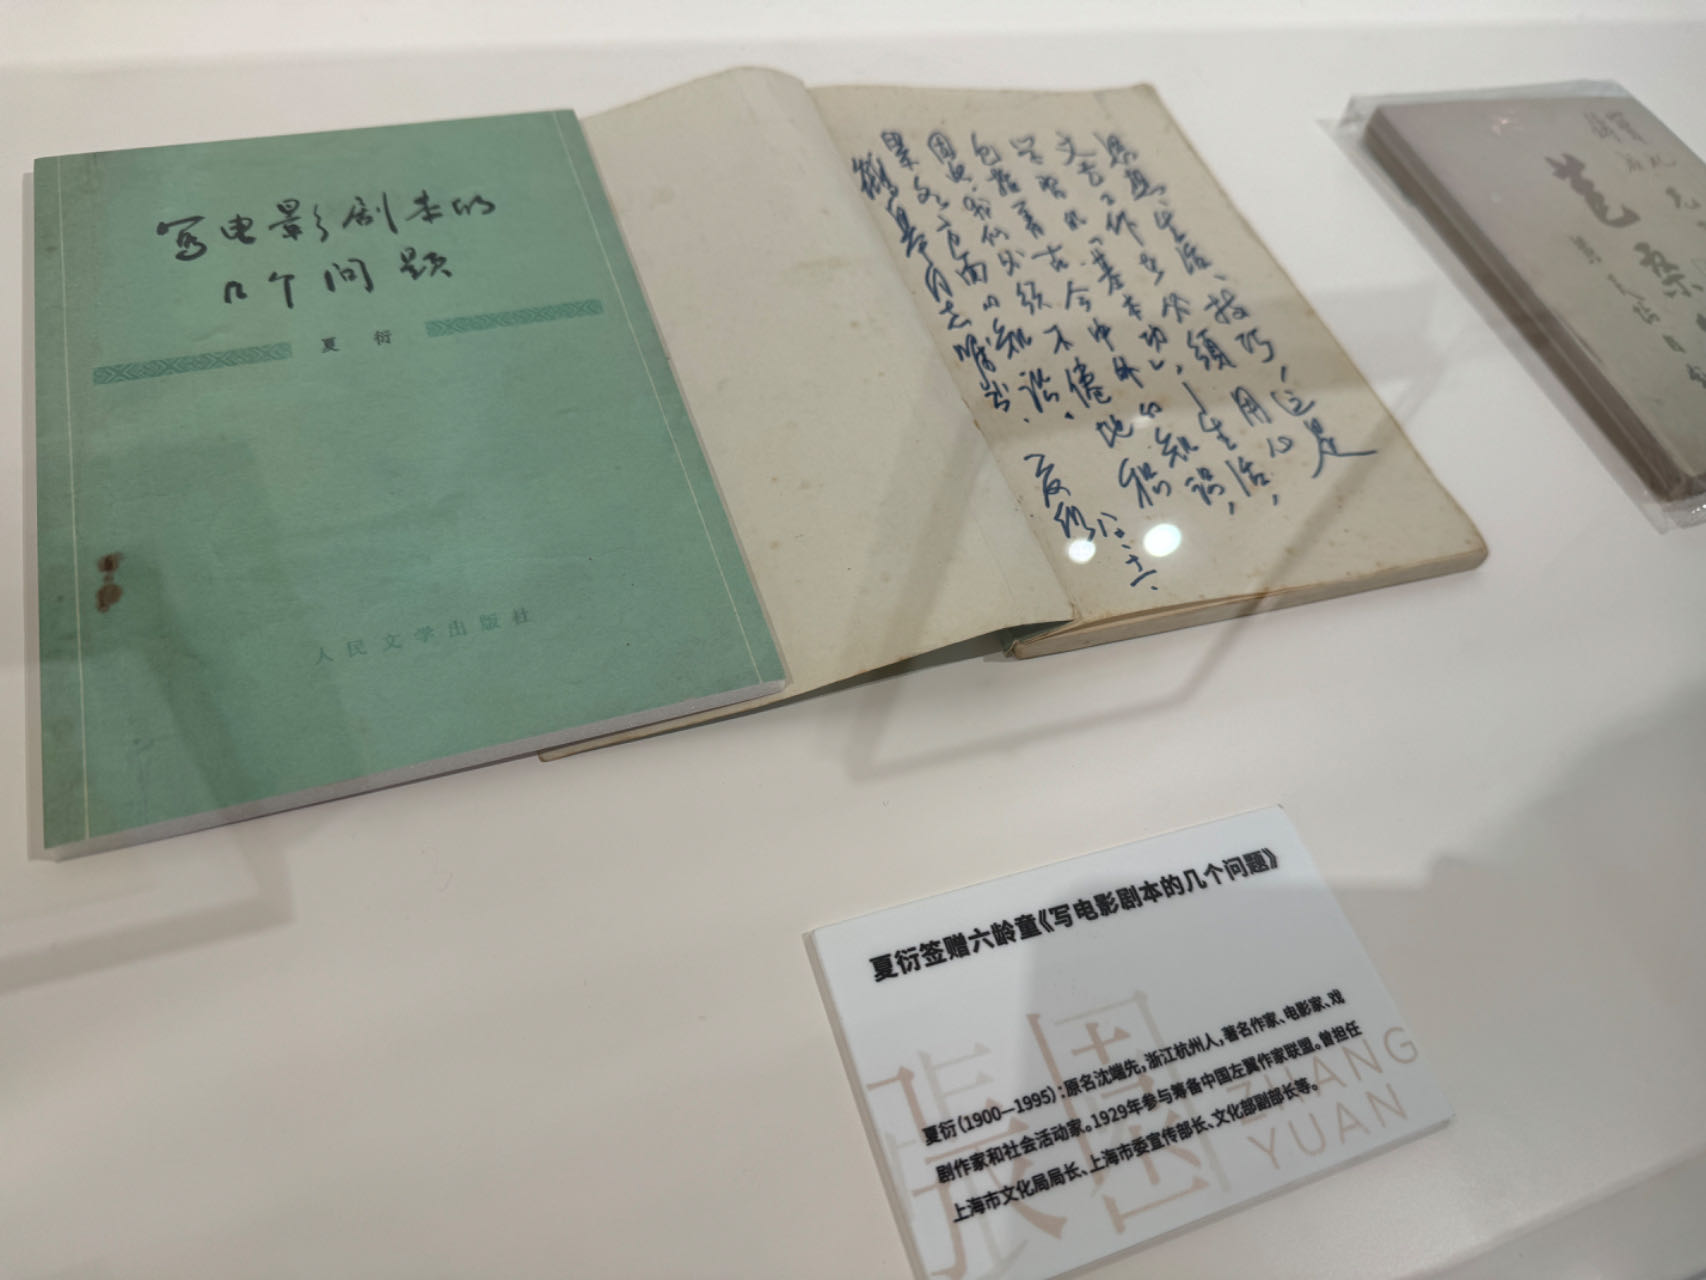 写电影剧本的
几个问题
夏衍
人民文学出版社
思想、生活、技巧，这是
文艺工作者必须用心
学习的「基本功」，—生活，
包括着古今中外的知识，
因此我们必须不倦地积
累各方面的知识。
同志嘱书．
夏衍
八〇、十一、
夏衍签赠六龄童《写电影剧本的几个问题》
夏衍（1900—1995）：原名沈端先，浙江杭州人，著名作家、电影家、戏
剧作家和社会活动家。1929年参与筹备中国左翼作家联盟。曾担任
上海市文化局局长、上海市委宣传部长、文化部副部长等。
ZHANG
YUAN